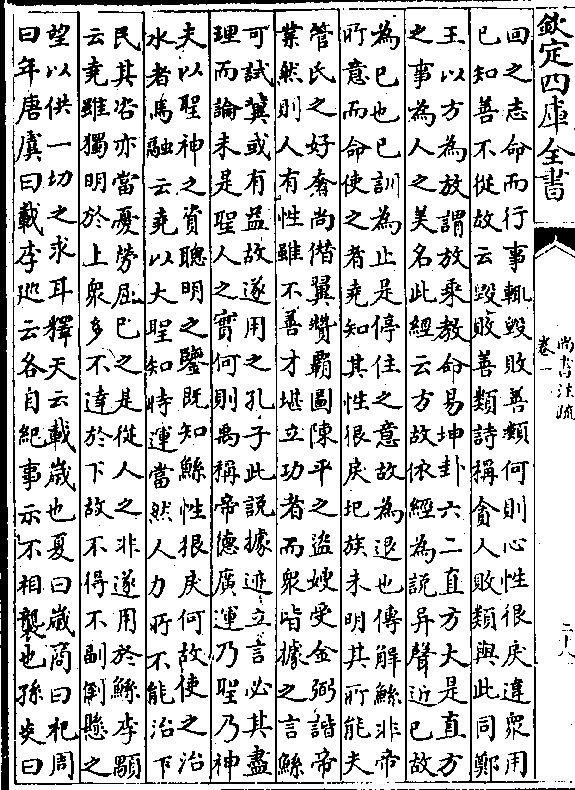 欽定四庫全書
尚書注疏
卷一
二十八
回之志命而行事輒毀敗善類何則心性很戾違衆用
已知善不從故云毀敗善類詩稱貪人敗類與此同鄭
王以方為放謂放棄教命易坤卦六二直方大是直方
之事為人之美名此經云方故依經為說异聲近已故
為已也已訓為止是停住之意故為退也傳解鯀非帝
所意而命使之者堯知其性很戾圮族未明其所能夫
管氏之好奢尚僭翼贊霸圖陳平之盜嫂受金弼諧帝
業然則人有性雖不善才堪立功者而衆皆據之言鯀
可試冀或有益故遂用之孔子此說據迹立言必其盡
理而論未是聖人之實何則禹稱帝德廣運乃聖乃神
夫以聖神之資聰明之鑒既知鯀性很戾何故使之治
水者馬融云堯以大聖知時運當然人力所不能治下
民其咨亦當憂勞屈已之是從人之非遂用於鯀李顒
云堯雖獨明於上衆多不達於下故不得不副倒懸之
望以供一切之求耳釋天云載歲也夏曰歲商曰祀周
曰年唐虞曰載李巡云各自紀事示不相襲也孫炎曰